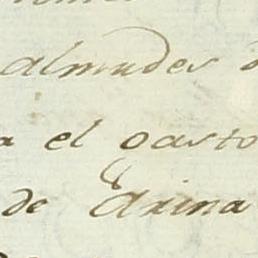 almudes d
a el gasto
de Arina